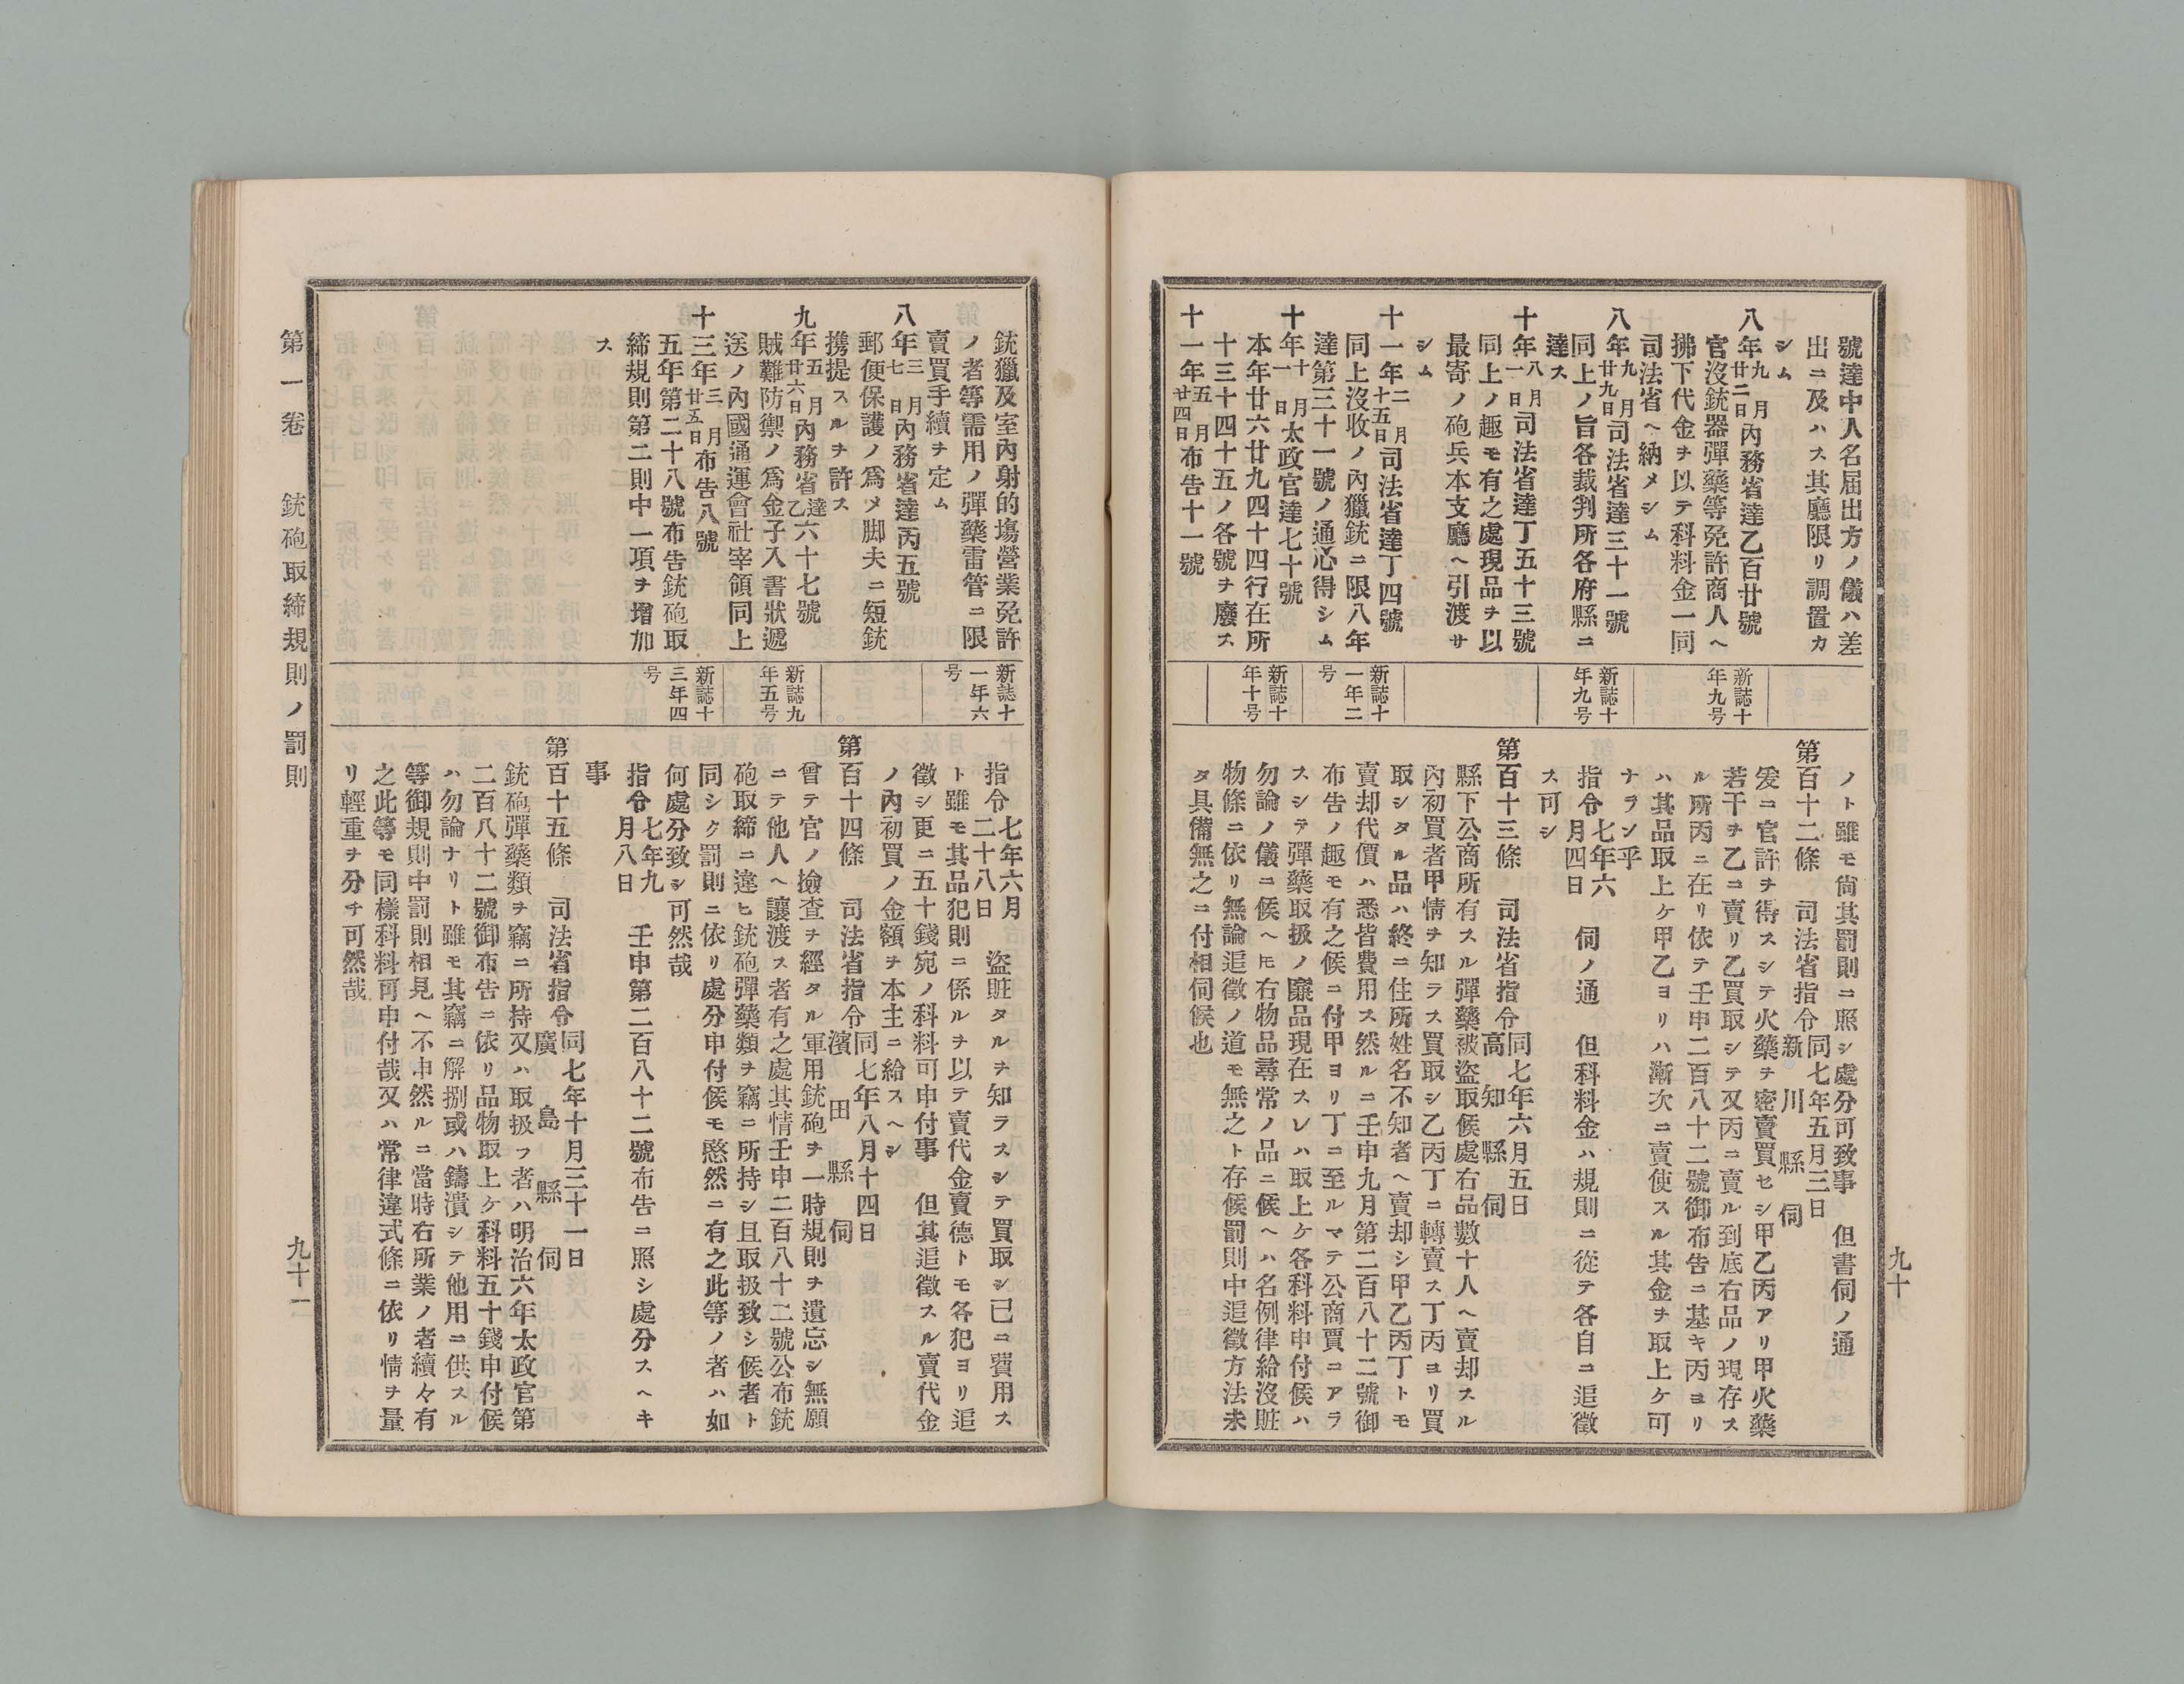 號達中人名屆出方ノ儀ハ差
出ニ及ハス其廳限リ調置カ
シム
八年九月廿二日內務省達乙百廿號
官沒銃器彈藥等免許商人ヘ
拂下代金ヲ以テ科料金一同
司法省ヘ納メシム
八年九月廿九日司法省達三十一號
同上ノ旨各裁判所各府縣ニ
達ス
十年八月一日司法省達丁五十三號
同上ノ趣モ有之處現品ヲ以
最寄ノ砲兵本支廳ヘ引渡サ
シム
十一年二月十五日司法省達丁四號
同上沒收ノ內獵銃ニ限八年
達第三十一號ノ通心得シム
十年十月一日太政官達七十號
本年廿六廿九四十四行在所
十三十四十五ノ各號ヲ廢ス
十一年五月廿四日布告十一號
新誌十
年九号
新誌十
年九号
新誌十
一年二
号
新誌十
年十号
ノト雖モ尙其罰則ニ照シ處分可致事 但書伺ノ通
第百十二條 司法省指令同七年五月三日新川縣伺
爰ニ官許ヲ得スシテ火藥ヲ密賣買セシ甲乙丙アリ甲火藥
若干ヲ乙ニ賣リ乙買取シテ又丙ニ賣ル到底右品ノ現存ス
ル所丙ニ在リ依テ壬申二百八十二號御布告ニ基キ丙ヨリ
ハ其品取上ケ甲乙ヨリハ漸次ニ賣使スル其金ヲ取上ケ可
ナランヤ
指令七年六月四日 伺ノ通 但科料金ハ規則ニ從テ各自ニ追徵
ス可シ
第百十三條 司法省指令同七年六月五日高知縣伺
縣下公商所有スル彈藥被盜取候處右品數十人ヘ賣却スル
內初買者甲情ヲ知ラス買取シ乙丙丁ニ轉賣ス丁丙ヨリ買
取シタル品ハ終ニ住所姓名不知者ヘ賣却シ甲乙丙丁トモ
賣却代價ハ悉皆費用ス然ルニ壬申九月第二百八十二號御
布告ノ趣モ有之候ニ付甲ヨリ丁ニ至ルマテ公商賈ニアラ
スシテ彈藥取扱ノ廉品現在スレハ取上ケ各科料申付候ハ
勿論ノ儀ニ候ヘ𪜈右物品尋常ノ品ニ候ヘハ名例律給沒贓
物條ニ依リ無論追徵ノ道モ無之ト存候罰則中追徵方法未
タ具備無之ニ付相伺候也
九十
銃獵及室內射的塲營業免許
ノ者等需用ノ彈藥雷管ニ限
賣買手續ヲ定ム
八年三月七日內務省達丙五號
郵便保護ノ爲メ脚夫ニ短銃
携提スルヲ許ス
九年五月廿六日內務省達乙六十七號
賊難防禦ノ爲金子入書狀遞
送ノ內國通運會社宰領同上
十三年三月廿五日布告八號
五年第二十八號布告銃砲取
締規則第二則中一項ヲ增加
ス
新誌十
一年六
号
新誌九
年五号
新誌十
三年四
号
指令七年六月二十八日 盜贓タルヲ知ラスシテ買取シ已ニ費用ス
ト雖モ其品犯則ニ係ルヲ以テ賣代金賣德トモ各犯ヨリ追
徵シ更ニ五十錢宛ノ科料可申付事 但其追徵スル賣代金
ノ內初買ノ金額ヲ本主ニ給スヘシ
第百十四條 司法省指令同七年八月十四日濱田縣伺
曾テ官ノ撿查ヲ經タル軍用銃砲ヲ一時規則ヲ遺忘シ無願
ニテ他人ヘ讓渡ス者有之處其情壬申二百八十二號公布銃
砲取締ニ違ヒ銃砲彈藥類ヲ竊ニ所持シ且取扱致シ候者ト
同シク罰則ニ依リ處分申付候モ愍然ニ有之此等ノ者ハ如
何處分致シ可然哉
指令七年九月八日 壬申第二百八十二號布告ニ照シ處分スヘキ
事
第百十五條 司法省指令同七年十月三十一日廣島縣伺
銃砲彈藥類ヲ竊ニ所持又ハ取扱フ者ハ明治六年太政官第
二百八十二號御布告ニ依リ品物取上ケ科料五十錢申付候
ハ勿論ナリト雖モ其竊ニ解捌或ハ鑄潰シテ他用ニ供スル
等御規則中罰則相見ヘ不申然ルニ當時右所業ノ者續々有
之此等モ同樣科料可申付哉又ハ常律違式條ニ依リ情ヲ量
リ輕重ヲ分チ可然哉
第一卷 銃砲取締規則ノ罰則
九十一